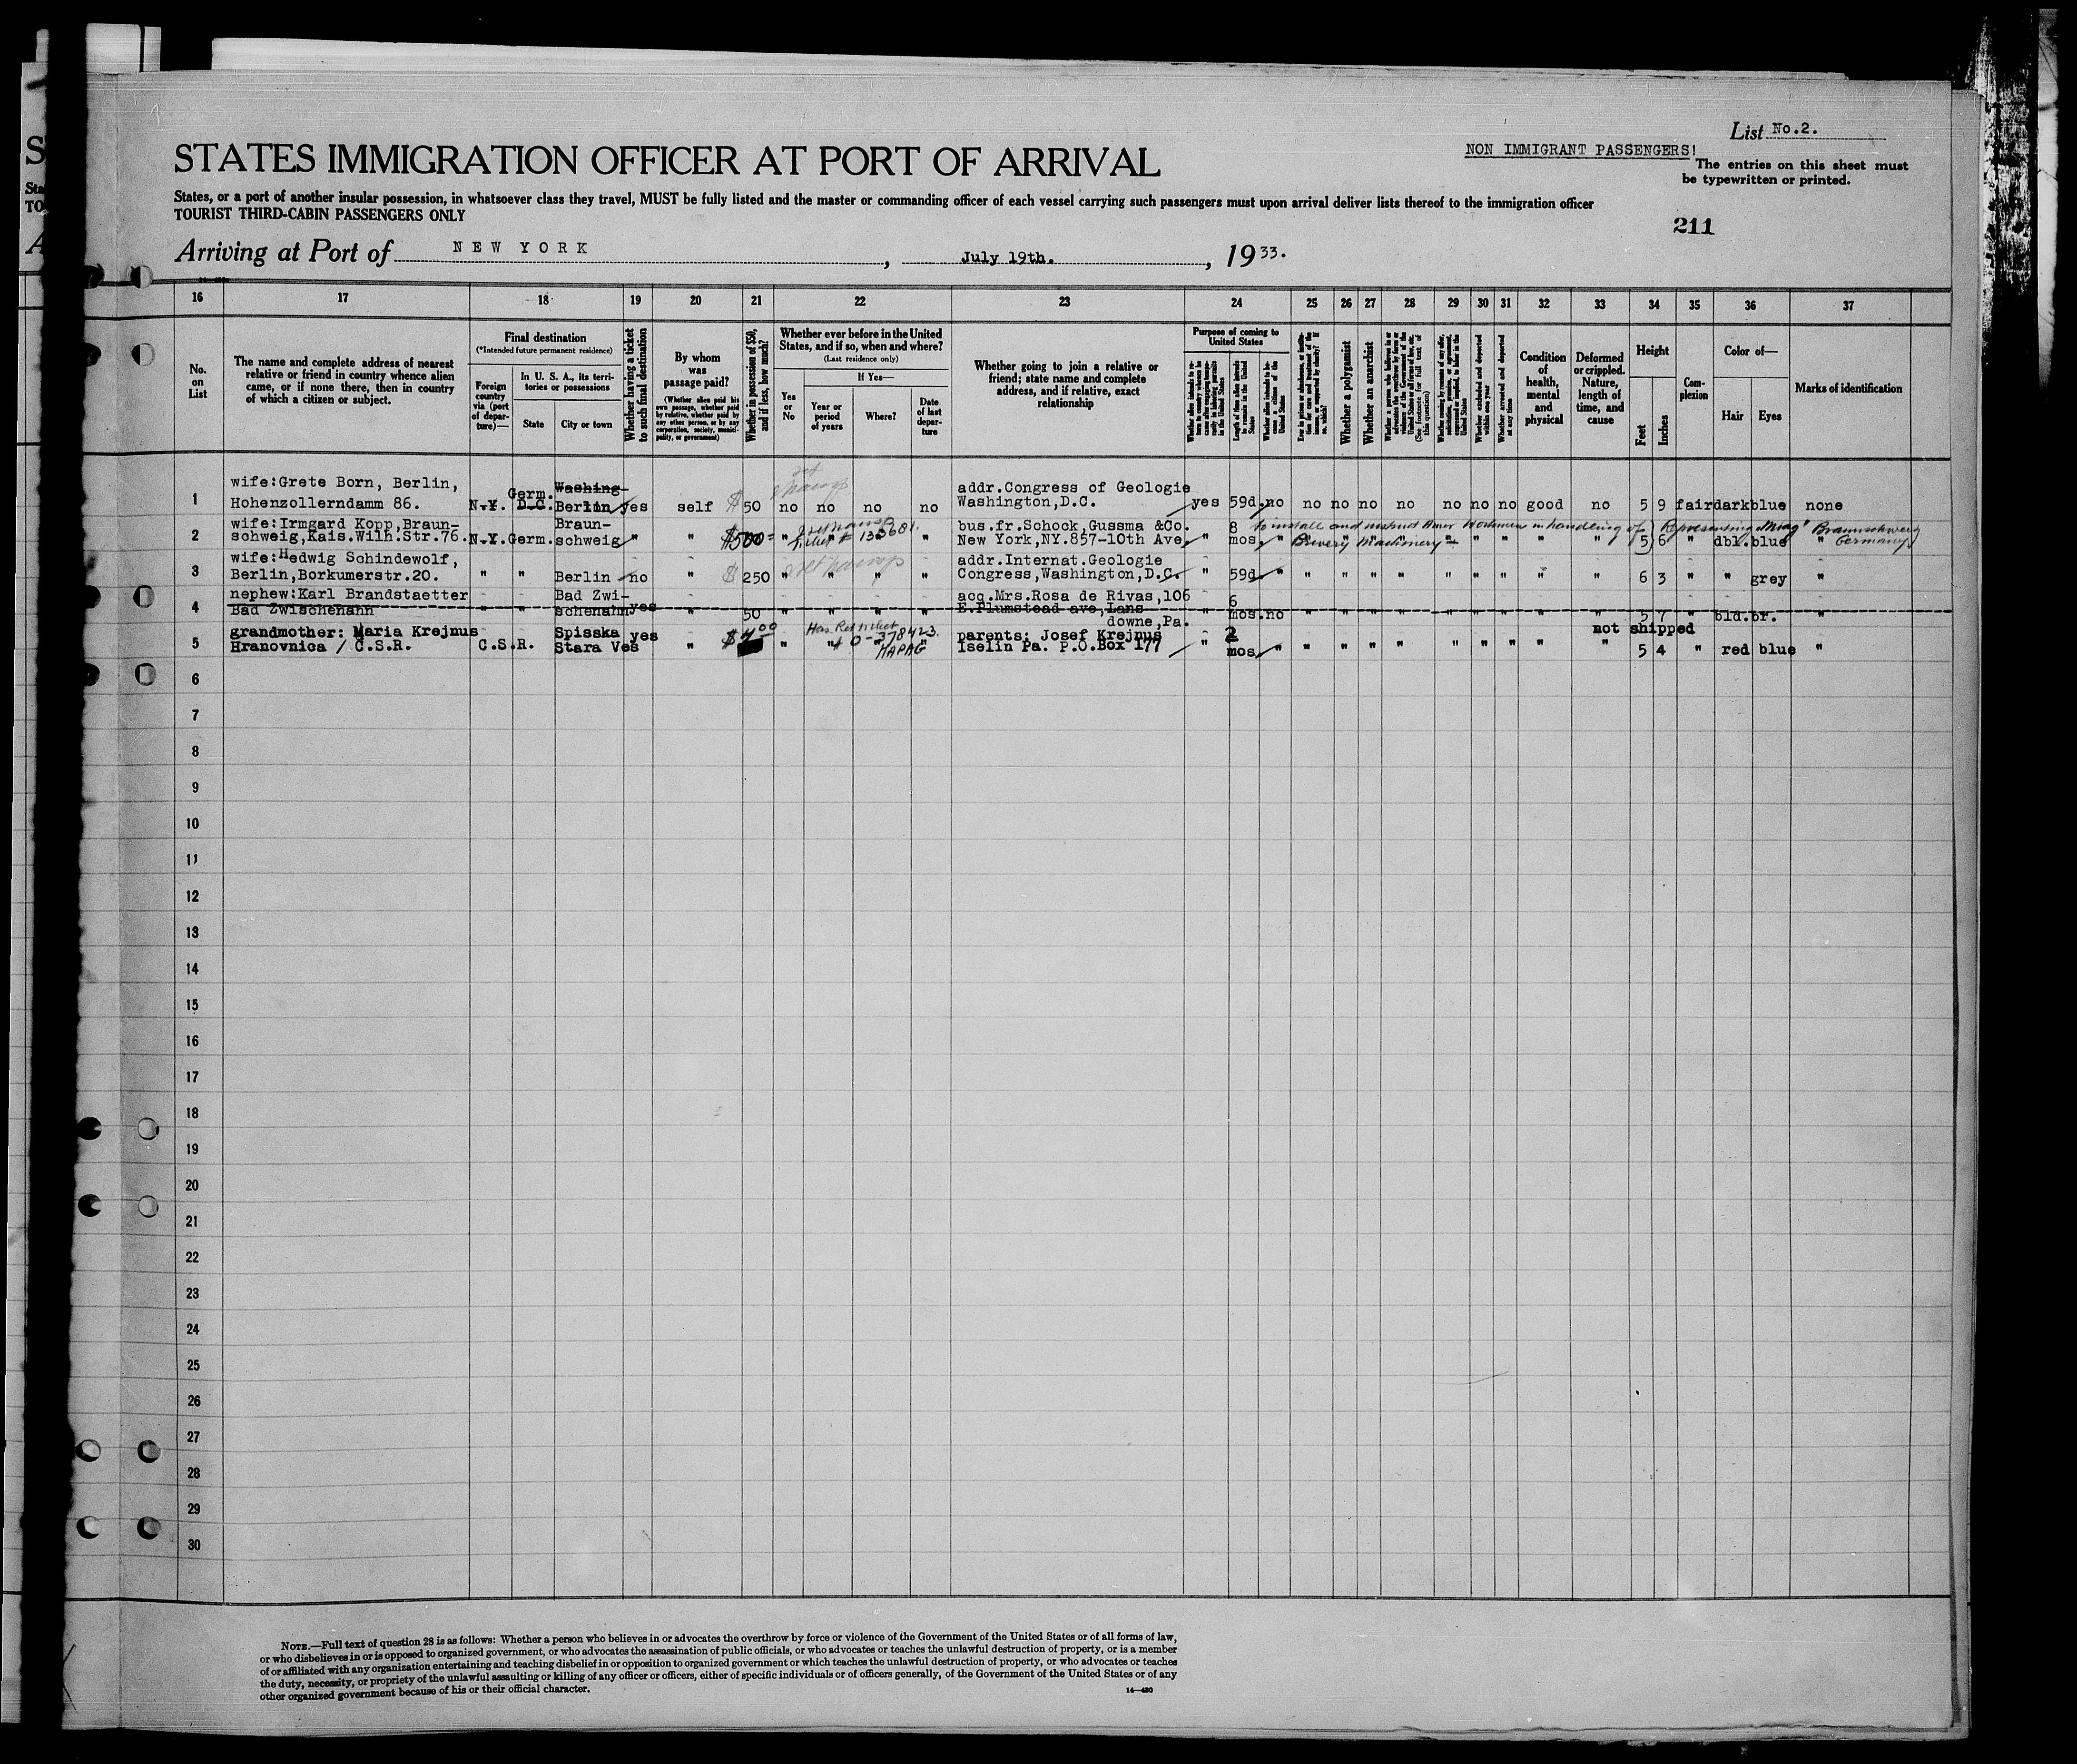 List No.2.
NON IMMIGRANT PASSENGERS!
STATES IMMIGRATION OFFICER AT PORT OF ARRIVAL
The entries on this sheet must
be typewritten or printed.
States, or a port of another insular possession, in whatsoever class they travel, MUST be fully listed and the master or commanding officer of each vessel carrying such passengers must upon arrival deliver lists thereof to the immigration officer
TOURIST THIRD-CABIN PASSENGERS ONLY
211
Arriving at Port of NEW YORK, July 19th., 1933.
16 17 18 19 20 21 22 23 24 25 26 27 28 29 30 31 32 33 34 35 36 37
No.
on
List
The name and complete address of nearest
relative or friend in country whence alien
came, or if none there, then in country
of which a citizen or subject.
Final destination
(*Intended future permanent residence)
Foreign
country
via (port
of depar-
ture)—
In U. S. A., its terri-
tories or possessions
State
City or town
Whether having a ticket
to such final destination
By whom
was
passage paid?
(Whether alien paid his
own passage, whether paid
by relative, whether paid by
any other person, or by any
corporation, society, munici-
pality, or government)
Whether in possession of $50,
and if less, how much?
Whether ever before in the United
States, and if so, when and where?
(Last residence only)
Yes
or
No
If Yes—
Year or
period
of years
Where?
Date
of last
depar-
ture
Whether going to join a relative or
friend; state name and complete
address, and if relative, exact
relationship
Purpose of coming to
United States
Length of time alien intends
to remain in the United
States
Whether a polygamist
Whether an anarchist
(See footnote for full text of
this question)
Whether excluded and deported
within one year
Whether arrested and deported
at any time
Condition
of
health,
mental
and
physical
Deformed
or crippled.
Nature,
length of
time, and
cause
Height
Feet
Inches
Com-
plexion
Color of—
Hair
Eyes
Marks of identification
wife:Grete Born, Berlin, Germ. Washing- addr.Congress of Geologie
1 Hohenzollerndamm 86. N.Y. D.C. Berlin yes self $ 50 no no no no Washington,D.C. yes 59d. no no no no no no no no good no 5 9 fair dark blue none
wife:Irmgard Kopp,Braun- Braun- bus.fr.Schock,Gussma &Co. 8 to install and instruct Amer Workmen in handling of Representing "Miag" Braunschweig
2 schweig,Kais.Wilh.Str.76. N.Y. Germ. schweig " " $500 " " " " New York,NY.857-10th Ave. " mos. " Brewery Machinery " 5 6 " dbl. blue " Germany
wife:Hedwig Schindewolf, addr.Internat.Geologie
3 Berlin,Borkumerstr.20. " " Berlin no " $ 250 " " " " Congress,Washington,D.C. " 59d " " " " " " " " " " 6 3 " " grey "
nephew:Karl Brandstaetter Bad Zwi- acq.Mrs.Rosa de Rivas,106 6
4 Bad Zwischenahn " " schenahn yes " 50 " " " " E.Plumstead ave,Lans " mos. no " " " " " " " " " 5 7 " bld. br. "
downe,Pa.
not shipped
grandmother: Maria Krejnus Spisska yes $400 Has Ret ticket parents; Josef Krejnus 2
5 Hranovnica / C.S.R. C.S.R. Stara Ves " " # 0-378423. Iselin Pa. P.O.Box 177 " mos. " " " " " " " " " " 5 4 " red blue "
HAPAG
6
7
8
9
10
11
12
13
14
15
16
17
18
19
20
21
22
23
24
25
26
27
28
29
30
NOTE.—Full text of question 28 is as follows: Whether a person who believes in or advocates the overthrow by force or violence of the Government of the United States or of all forms of law,
or who disbelieves in or is opposed to organized government, or who advocates the assassination of public officials, or who advocates or teaches the unlawful destruction of property, or is a member
of or affiliated with any organization entertaining and teaching disbelief in or opposition to organized government or which teaches the unlawful destruction of property, or who advocates or teaches
the duty, necessity, or propriety of the unlawful assaulting or killing of any officer or officers, either of specific individuals or of officers generally, of the Government of the United States or of any
other organized government because of his or their official character.
14—430